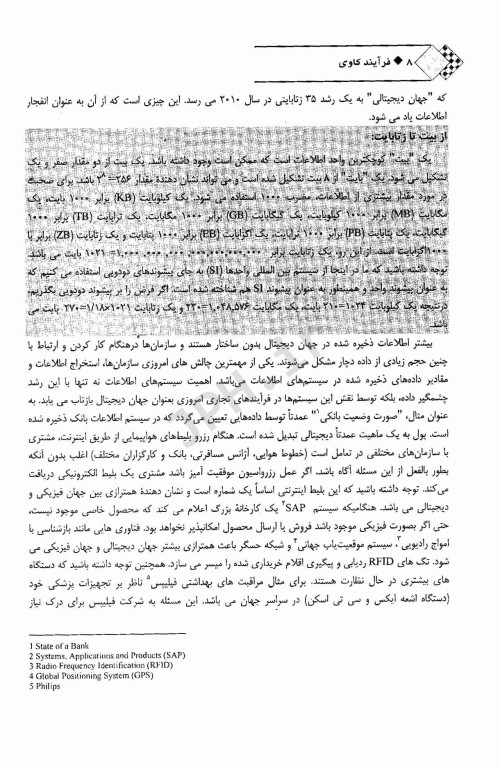 ۸ ◆ فرآیند کاوی
که "جهان دیجیتالی" به یک رشد ۳۵ زتابایتی در سال ۲۰۱۰ می رسد. این چیزی است که از آن به عنوان انفجار
اطلاعات یاد می شود.
از بیت تا زتابایت:
یک "بیت" کوچکترین واحد اطلاعات است که ممکن است وجود داشته باشد. یک بیت از دو مقدار صفر و یک
تشکیل می شود. یک "بایت" از ۸ بیت تشکیل شده است و می تواند نشان دهندهٔ مقدار ۲۵۶=۲^۸ باشد. برای صحبت
در مورد مقدار بیشتری از اطلاعات، مضرب ۱۰۰۰ استفاده می شود. یک کیلوبایت (KB) برابر ۱۰۰۰ بایت، یک
مگابایت (MB) برابر ۱۰۰۰ کیلوبایت، یک گیگابایت (GB) برابر ۱۰۰۰ مگابایت، یک ترابایت (TB) برابر ۱۰۰۰
گیگابایت، یک پتابایت (PB) برابر ۱۰۰۰ ترابایت، یک اگزابایت (EB) برابر ۱۰۰۰ پتابایت و یک زتابایت (ZB) برابر با
۱۰۰۰اگزابایت است. از این رو، یک زتابایت برابر ۱,۰۰۰,۰۰۰,۰۰۰,۰۰۰,۰۰۰,۰۰۰,۰۰۰= ۱۰۲۱ بایت می باشد.
توجه داشته باشید که ما در اینجا از سیستم بین المللی واحدها (SI) به جای پیشوندهای دودویی استفاده می کنیم که
به عنوان پیشوند واحد و همینطور به عنوان پیشوند SI هم شناخته شده است. اگر فرض را بر پیشوند دودویی بگذریم،
درنتیجه یک کیلوبایت ۱۰۲۴=۲۱۰ بایت، یک مگابایت ۱,۰۴۸,۵۷۶=۲۲۰ و یک زتابایت ۱/۱۸×۱۰۲۱=۲۷۰ بایت می
باشد.
بیشتر اطلاعات ذخیره شده در جهان دیجیتال بدون ساختار هستند و سازمان‌ها درهنگام کار کردن و ارتباط با
چنین حجم زیادی از داده دچار مشکل می‌شوند. یکی از مهمترین چالش های امروزی سازمان‌ها، استخراج اطلاعات و
مقادیر داده‌های ذخیره شده در سیستم‌های اطلاعات می‌باشد. اهمیت سیستم‌های اطلاعات نه تنها با این رشد
چشمگیر داده، بلکه توسط نقش این سیستم‌ها در فرآیندهای تجاری امروزی بعنوان جهان دیجیتال بازتاب می یابد. به
عنوان مثال، "صورت وضعیت بانکی۱" عمدتاً توسط داده‌هایی تعیین می‌گردد که در سیستم اطلاعات بانک ذخیره شده
است. پول به یک ماهیت عمدتاً دیجیتالی تبدیل شده است. هنگام رزرو بلیط‌های هواپیمایی از طریق اینترنت، مشتری
با سازمان‌های مختلفی در تعامل است (خطوط هوایی، آژانس مسافرتی، بانک و کارگزاران مختلف) اغلب بدون آنکه
بطور بالفعل از این مسئله آگاه باشد. اگر عمل رزرواسیون موفقیت آمیز باشد مشتری یک بلیط الکترونیکی دریافت
می‌کند. توجه داشته باشید که این بلیط اینترنتی اساساً یک شماره است و نشان دهندهٔ همترازی بین جهان فیزیکی و
دیجیتالی می باشد. هنگامیکه سیستم SAP۲ یک کارخانهٔ بزرگ اعلام می کند که محصول خاصی موجود نیست،
حتی اگر بصورت فیزیکی موجود باشد فروش یا ارسال محصول امکانپذیر نخواهد بود. فناوری هایی مانند بازشناسی با
امواج رادیویی۳، سیستم موقعیت‌یاب جهانی۴ و شبکه حسگر باعث همترازی بیشتر جهان دیجیتالی و جهان فیزیکی می
شود. تگ های RFID ردیابی و پیگیری اقلام خریداری شده را میسر می سازد. همچنین توجه داشته باشید که دستگاه
های بیشتری در حال نظارت هستند. برای مثال مراقبت های بهداشتی فیلیپس۵ ناظر بر تجهیزات پزشکی خود
(دستگاه اشعه ایکس و سی تی اسکن) در سراسر جهان می باشد. این مسئله به شرکت فیلیپس برای درک نیاز
1 State of a Bank
2 Systems, Applications and Products (SAP)
3 Radio Frequency Identification (RFID)
4 Global Positioning System (GPS)
5 Philips